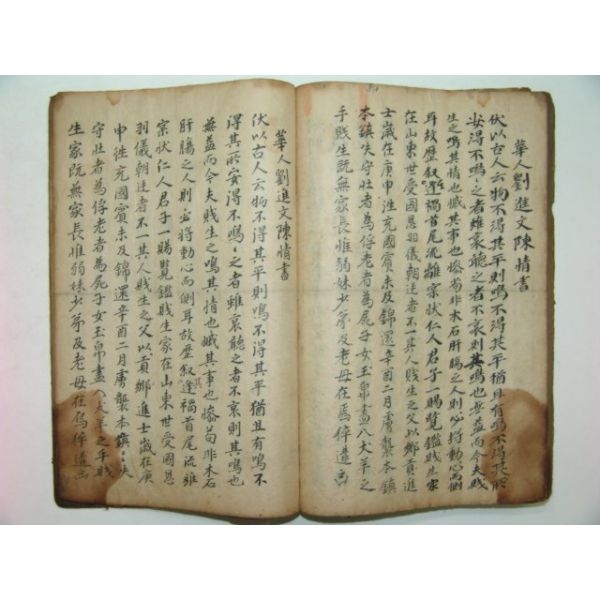 華人劉進文陳情書
伏以古人云物不得其平則鳴不得其平猶且有鳴不得其所
安得不鳴之者雖哀聽之者不哀則其鳴也無益而今夫賤
生之鳴其情也慽其事也慘苟非木石肝腸之人則必將動心而側
耳故歷叙逢褐首尾流離宗狀仁人君子一賜覽鑑賤生家
在山東世受國恩羽儀朝達者不一其人賤生之父以鄕貢進
士歲在庚申徃充國賓未及錦還辛酉二月虜襲本鎮
本鎮失守壯者為俘老者為屍子女玉帛盡八犬羊之
手賤生旣無家長惟弱妹少弟及老母在焉倅遣画
華人劉進文陳情書
伏以古人云物不得其平則鳴不得其平猶且有鳴不
得其所安得不鳴之者雖哀聽之者不哀則其鳴也
無益而今夫賤生之鳴其情也慽其事也慘苟非木石
肝腸之人則必將動心而側耳故歷叙逢褐首尾流離
宗狀仁人君子一賜覽鑑賤生家在山東世受國恩
羽儀朝達者不一其人賤生之父以貢鄕進士歲在庚
申徃充國賓未及錦還辛酉二月虜襲本鎮失
守壯者為俘老者為屍子女玉帛盡八犬羊之手賤
生家旣無家長惟弱妹少弟及老母在焉倅遣画